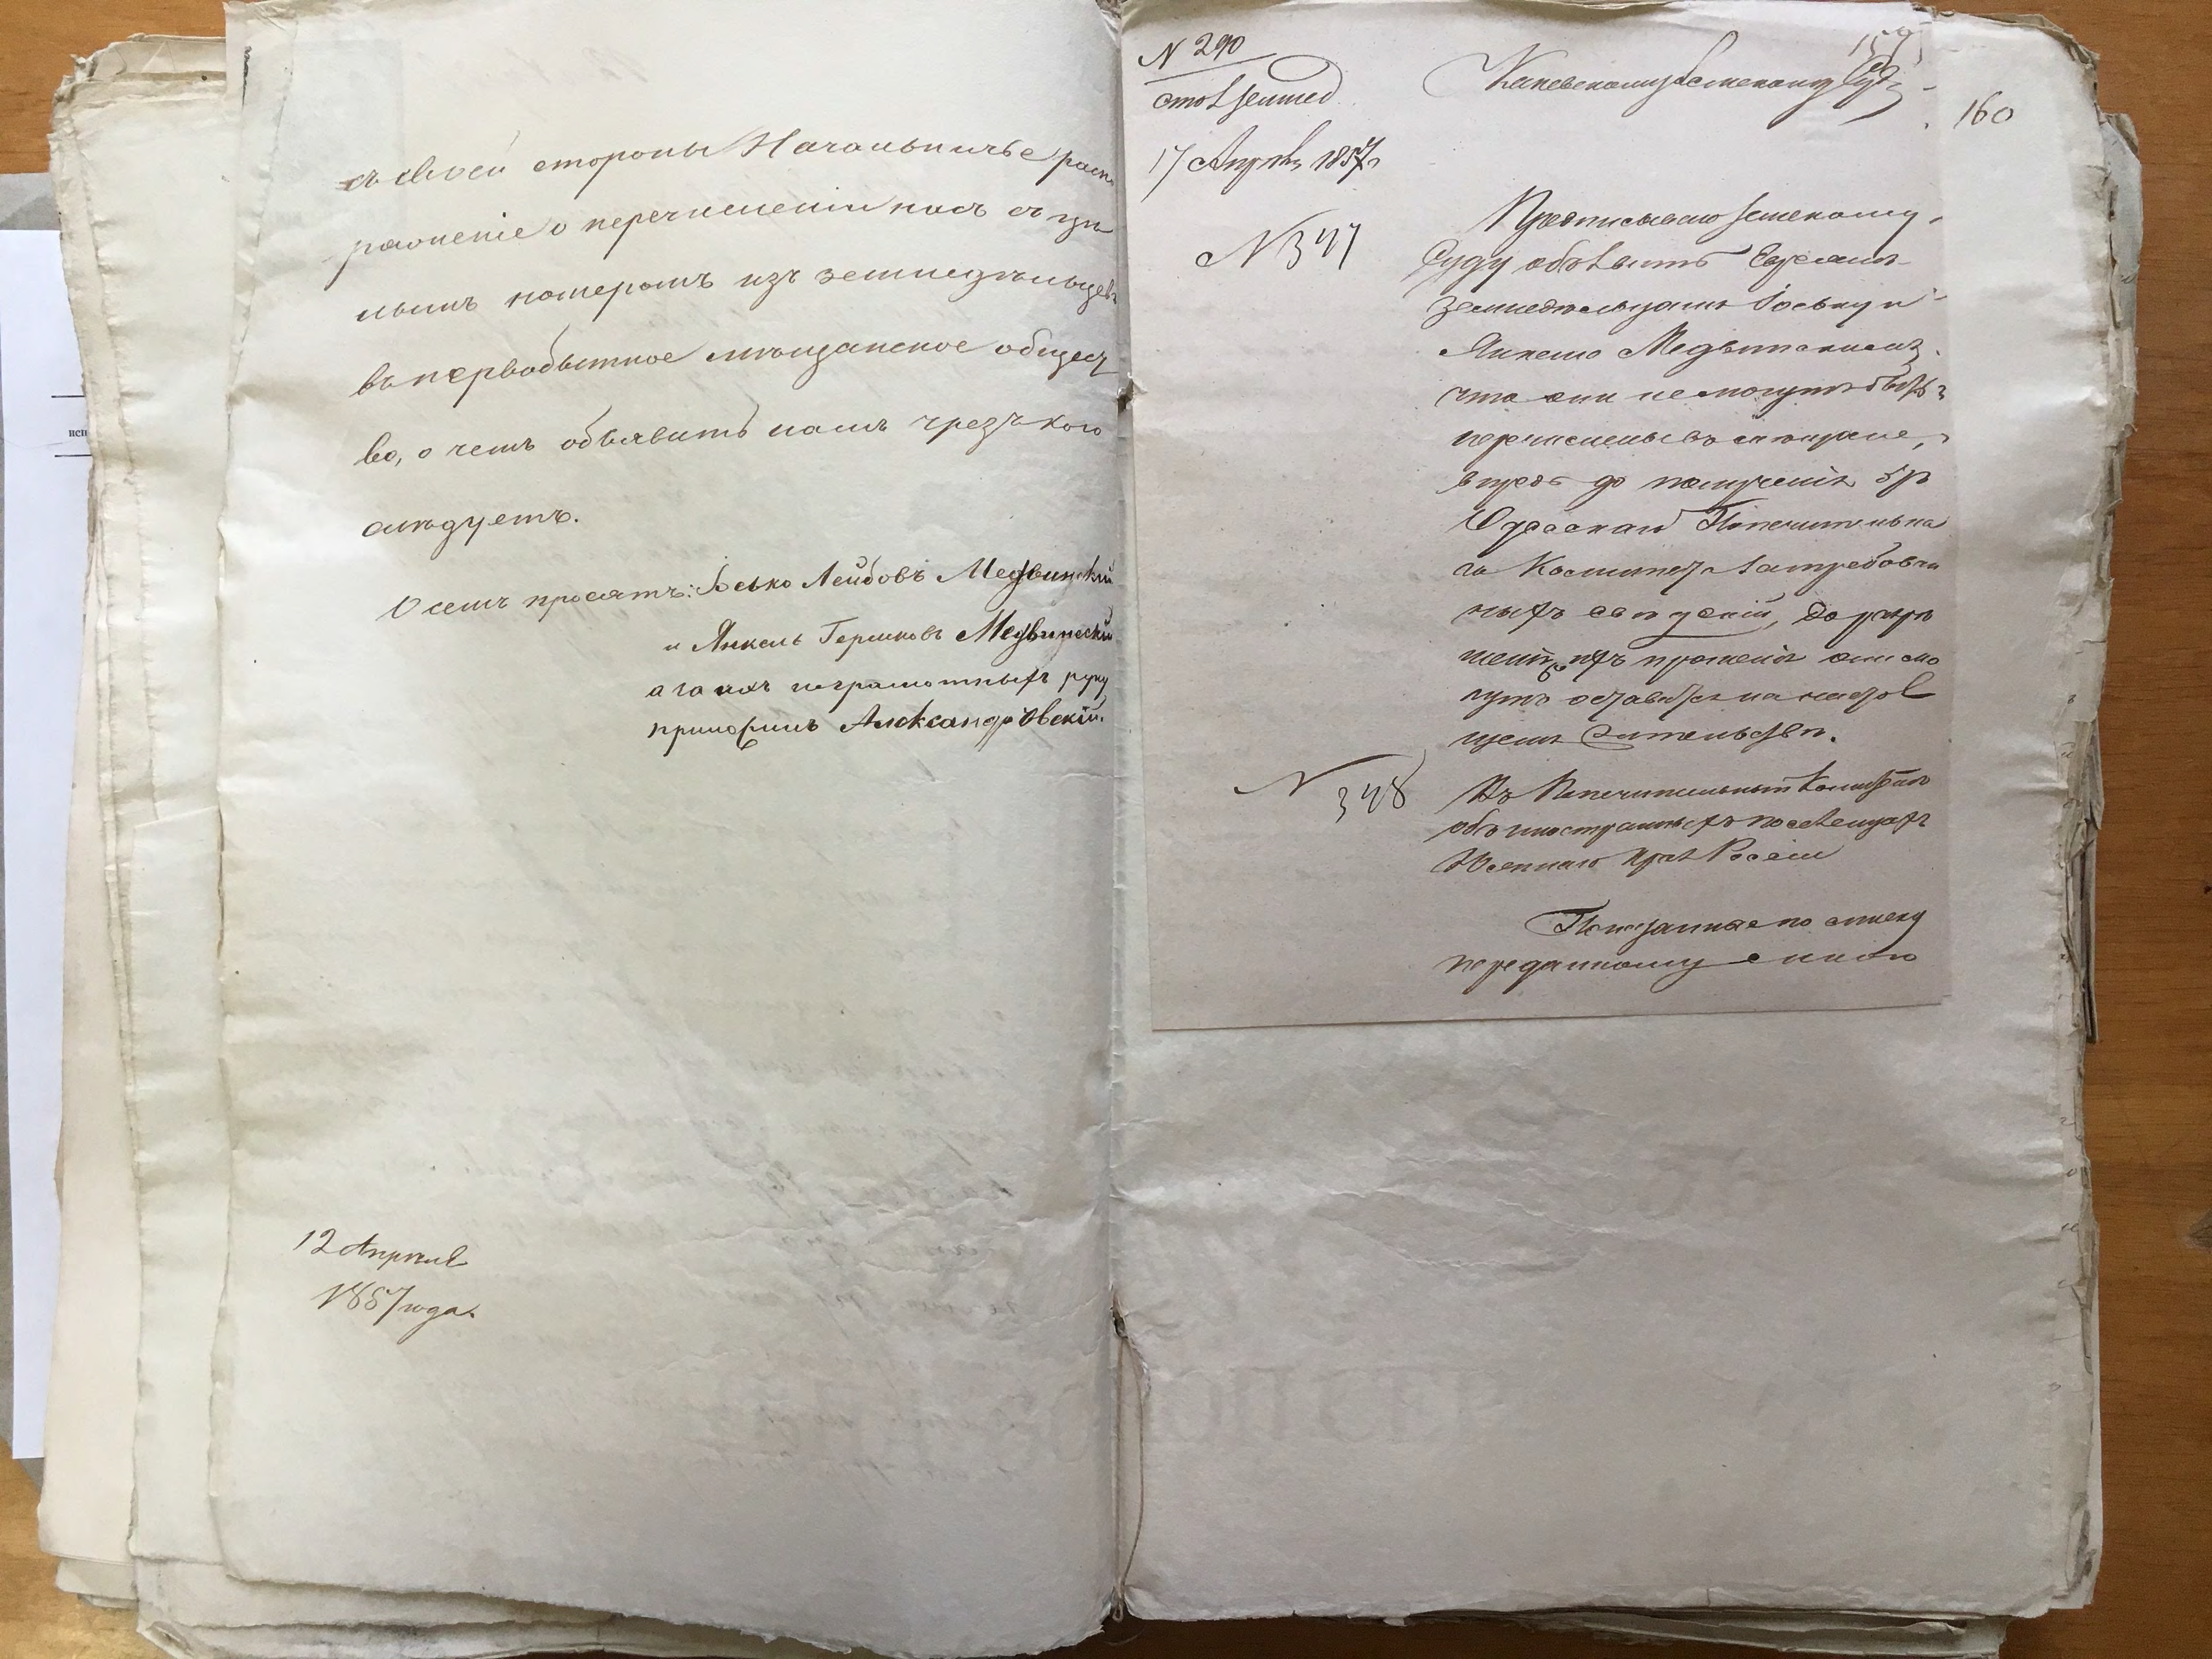 съ своей стороны Начальничье распо
ряженіе о перечисленіи насъ съ
нымъ номеромъ изъ земледѣльцевъ
въ первобытное мѣщанское общест
во, о чемъ объявить намъ чрезъ кого
слѣдуетъ.
О семъ просятъ: Іосько Лейбовъ Медвинскій
и Янкель Гершковъ Медвинскій
а за ихъ неграмотныхъ руку
приложилъ Александровскій.
12 Апрѣля
1857 года.
N 290
17 Апрѣля 1857
N 347
Каневскому Земскому Суду
159
160
Предписываю Земскому
Суду объявить Евреямъ
земледѣльцамъ Іоську и
Янкелю Медвинскимъ,
что они не могутъ быть
перечислены въ мѣщане,
впредь до полученія
Одесскаго Попечительна
го Комитета затребован
ныхъ свѣдѣній, до разрѣ
шенія ихъ прошенія они мо
гутъ оставаться на
щемъ жительствѣ.
N 348
Въ Попечительный Комитетъ
объ иностранныхъ поселенцахъ
Южнаго Края Россіи
Показанные по списку
переданному